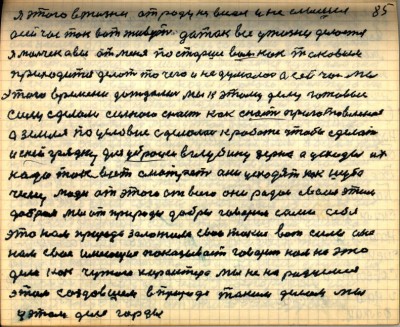 85
я этого в жизни от роду не видел и не слышал
а сейчас так вот живут. да так все у жизни делается
я молчками от меня по старше вам как таковым
приходится делать то чего и не думалось а сейчас мы
этого времени дождались мы к этому делу готовые
силы сделали сильного спать как спать приготовленное
а земля по целовые сделалась к работе чтобы сделать
и ней грядку для уброски в глубину зерна а усходы их
надо так вот смотреть они усходят как чудо
чему люди от этого от всего они рады своим этим
добрая мы от природы добры говорим сами себя
это нам природа заложила свои такие вот силы она
нам свое имеющее показывает говорит нам на это
дело как чужого характера мы не на
этом создавшем в природе таким делом мы
у этом деле горды